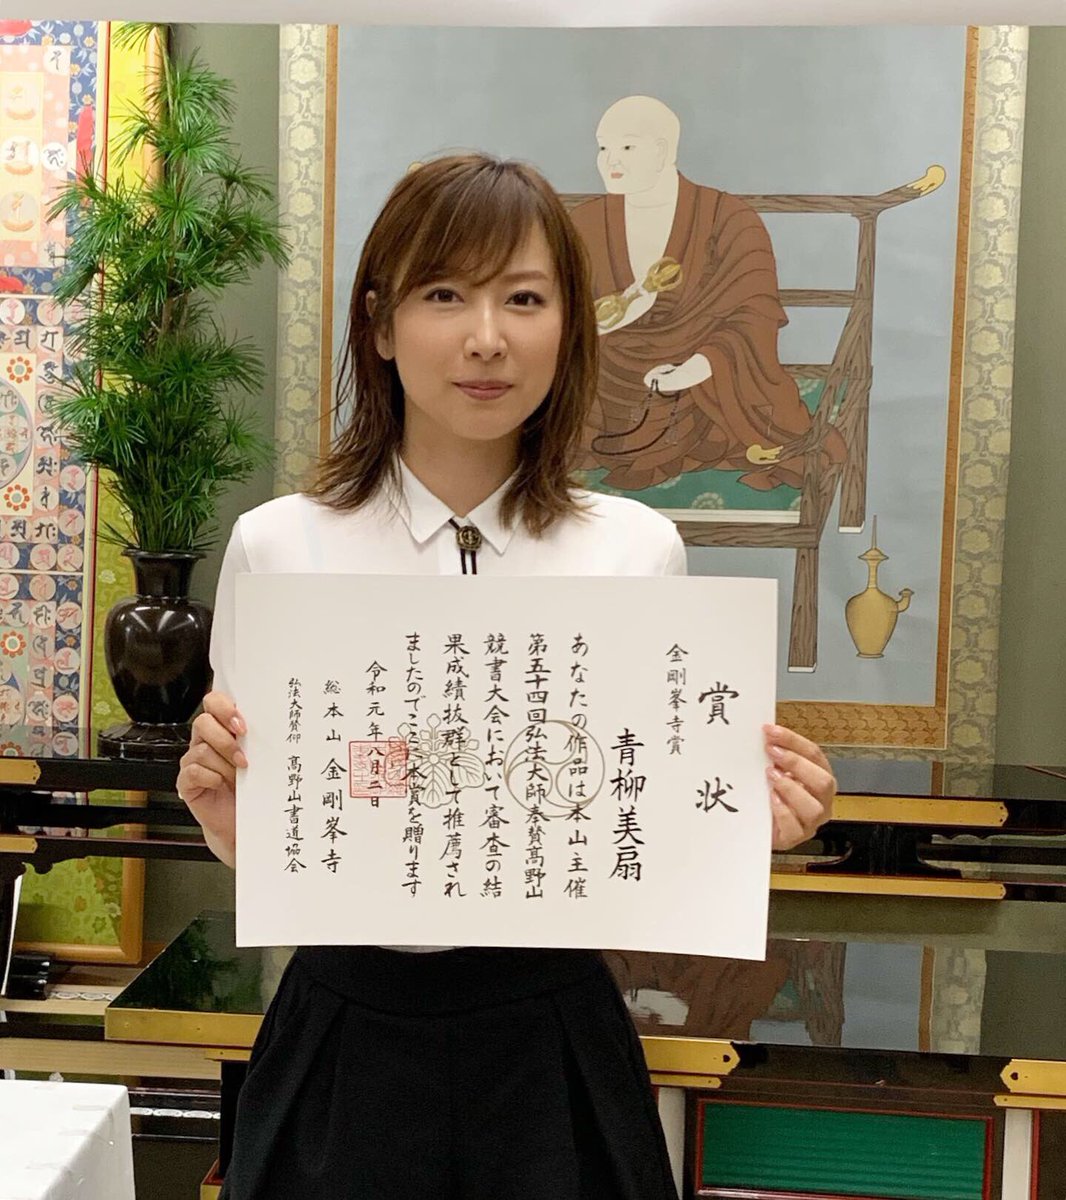 賞状
金剛峯寺賞
青柳美扇
あなたの作品は本山主催
第五十四回弘法大師奉賛高野山
競書大会において審査の結
果成績抜群として推薦され
ましたのでここに本賞を贈ります
令和元年八月二日
総本山 金剛峯寺
弘法大師賛仰 高野山書道協会